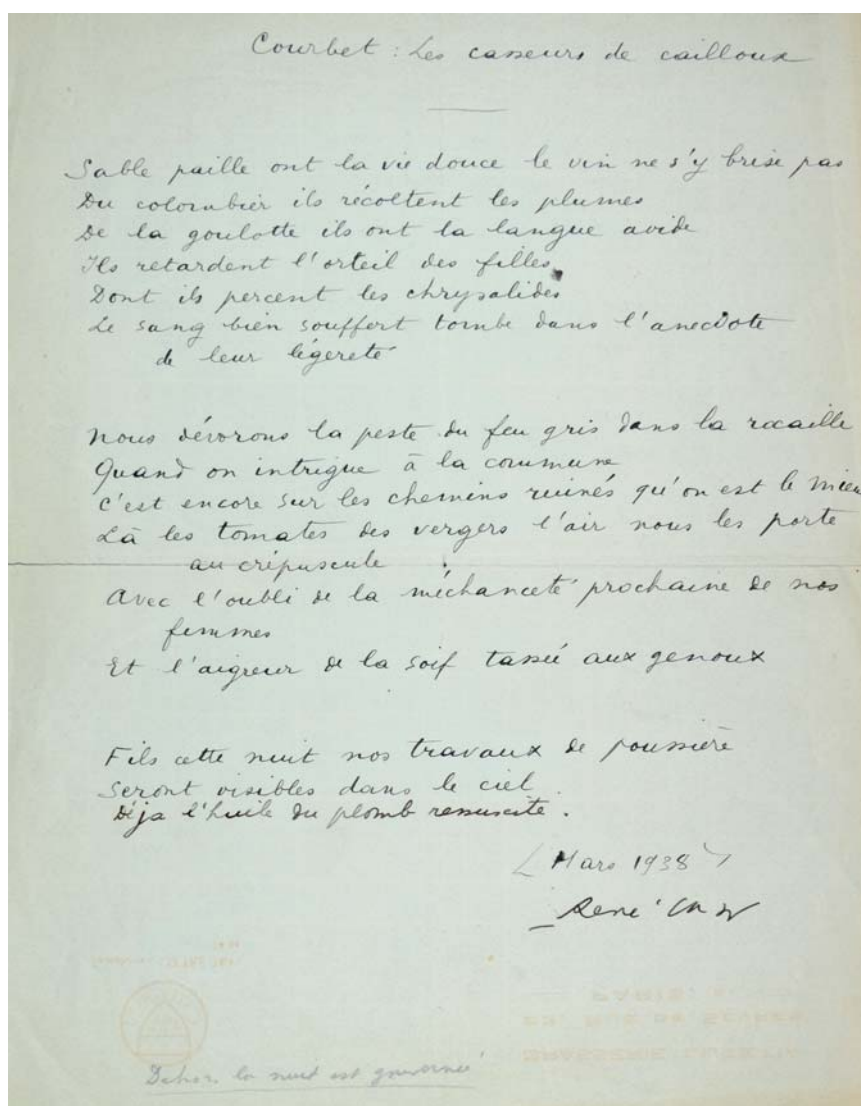 Courbet : Les casseurs de cailloux
Sable paille ont la vie douce le vin ne s'y brise pas
Du colombier ils récoltent les plumes
De la goulotte ils ont la langue avide
Ils retardent l'orteil des filles
Dont ils percent les chrysalides
Le sang bien souffert tombe dans l'anecdote
de leur légereté
Nous dévorons la peste du feu gris dans la rocaille
Quand on intrigue à la commune
C'est encore sur les chemins ruinés qu'on est le mieu
Là les tomates des vergers l'air nous les porte
au crépuscule
Avec l'oubli de la méchanceté prochaine de nos
femmes
Et l'aigreur de la soif tassée aux genoux
Fils cette nuit nos travaux de poussière
Seront visibles dans le ciel
Déja l'huile du plomb ressuscite.
Mars 1938
René Char
PARIS
RUE DE SEVRES
BRASSERIE LUTETIA
Dehors la nuit est gouvernée